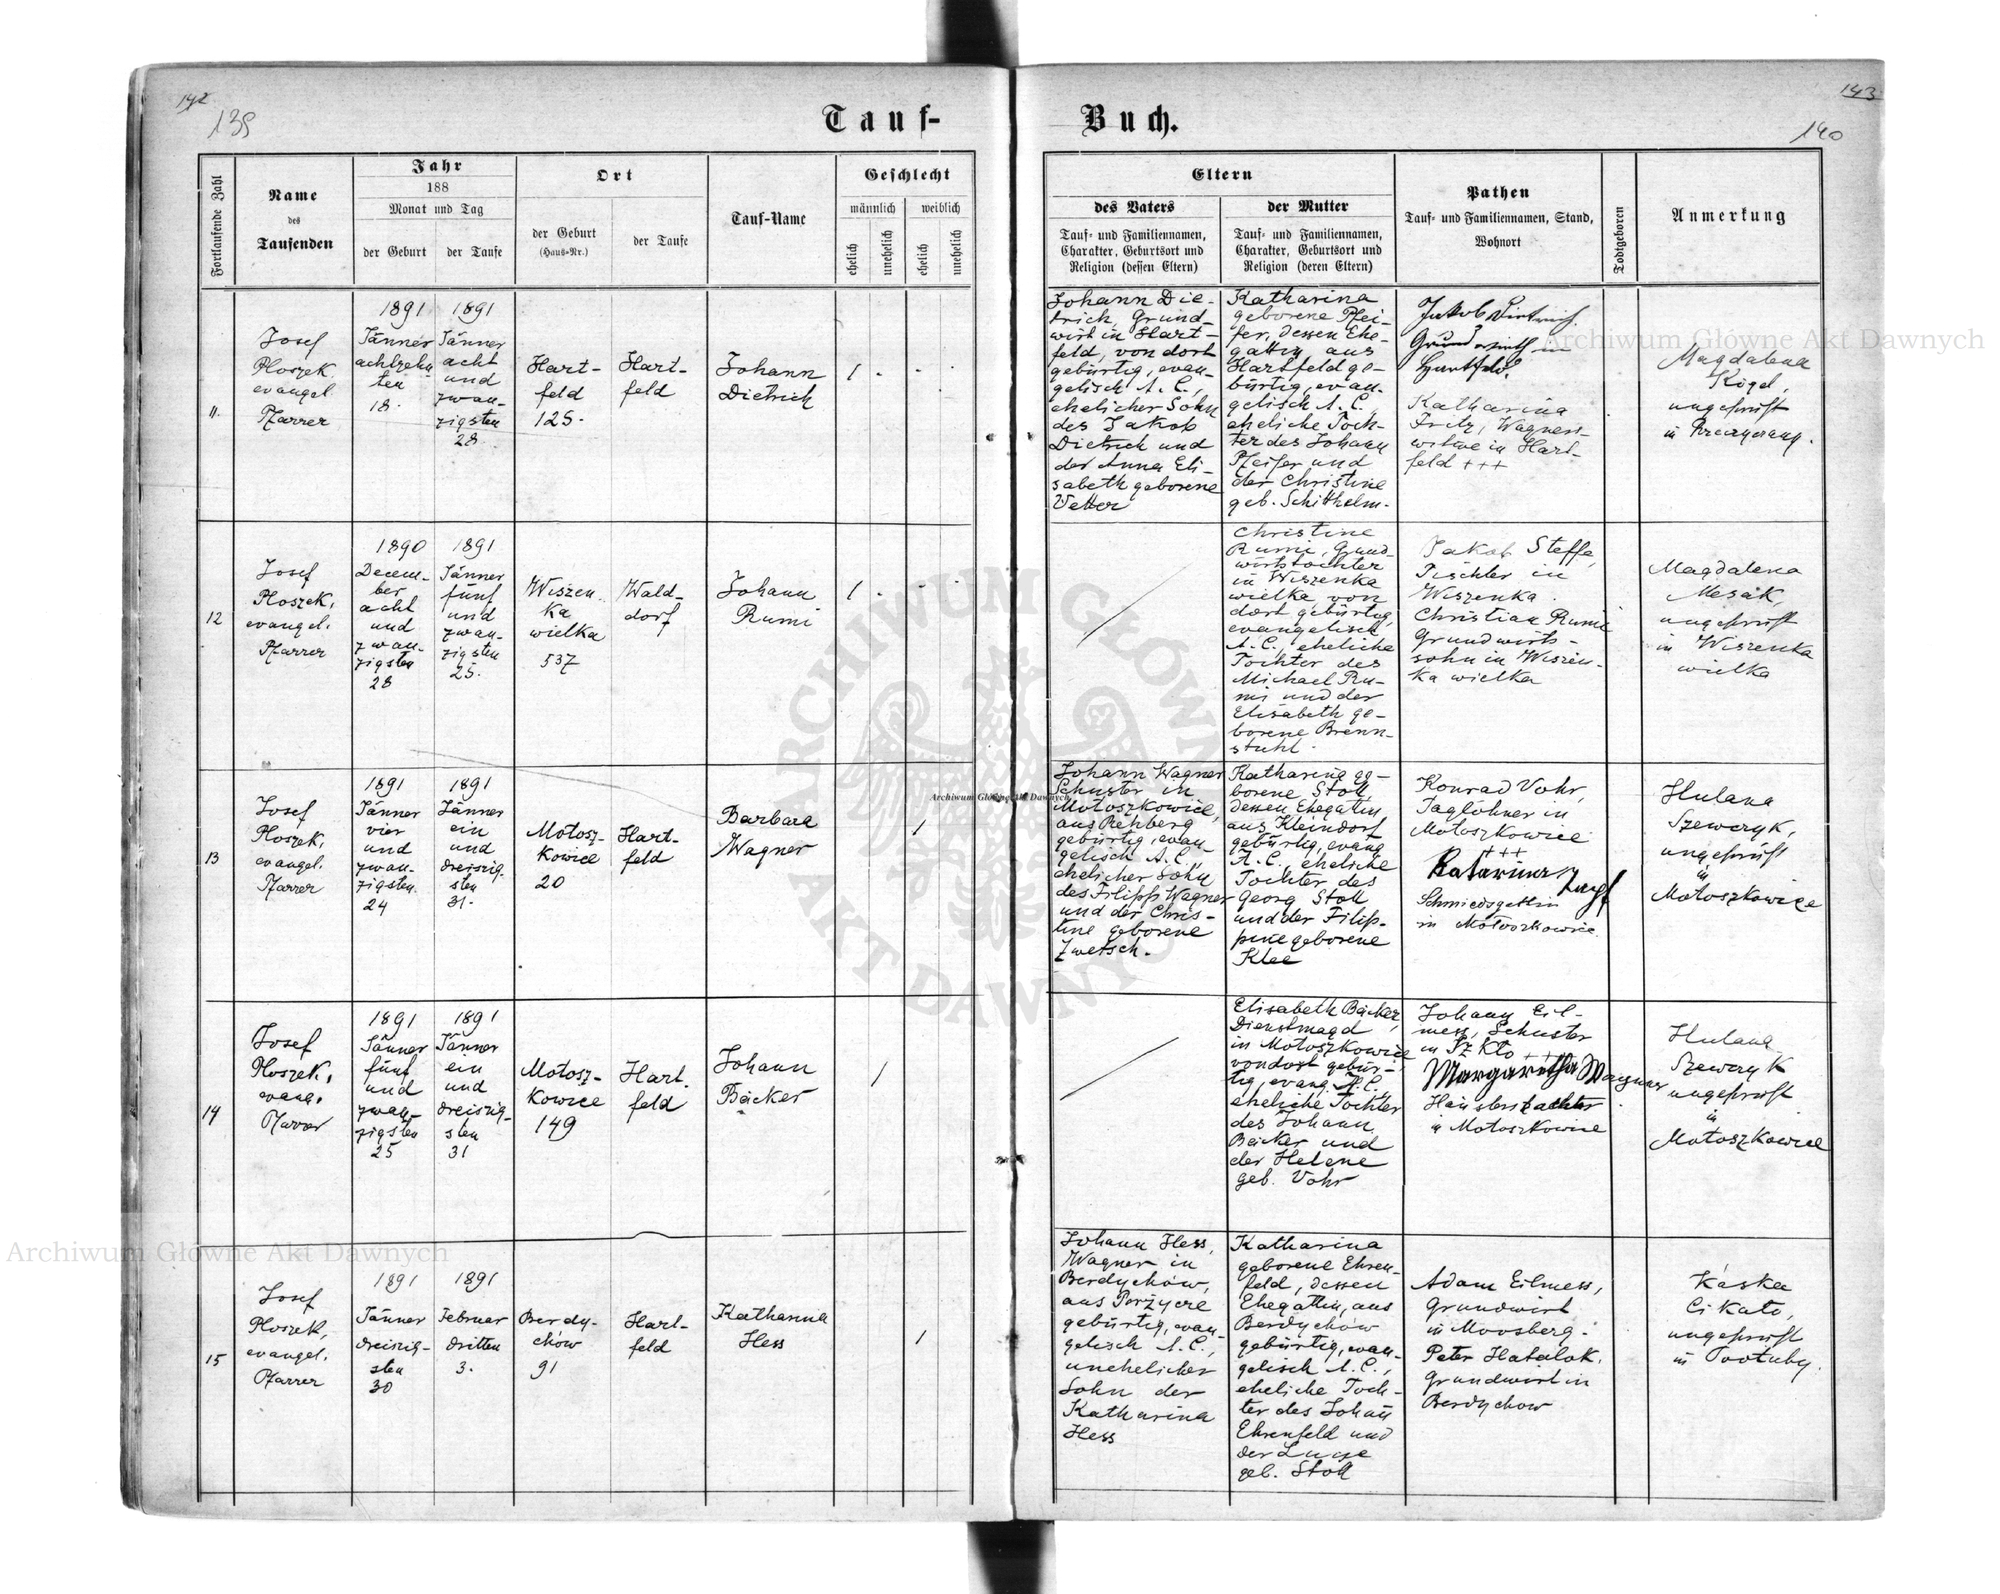 142
139
Tauf-
Buch.
143
140
Fortlaufende Zahl
Name
des
Taufenden
Jahr
188
Monat und Tag
der Geburt
der Taufe
Ort
der Geburt
(Haus-Nr.)
der Taufe
Tauf-Name
Geschlecht
männlich
weiblich
ehelich
unehelich
ehelich
unehelich
Eltern
des Vaters
Tauf- und Familiennamen,
Charakter, Geburtsort und
Religion (dessen Eltern)
der Mutter
Tauf- und Familiennamen,
Charakter, Geburtsort und
Religion (deren Eltern)
Pathen
Tauf- und Familiennamen, Stand,
Wohnort
Todtgeboren
Anmerkung
11.
Josef
Ploszek
evangel
Pfarrer
1891
Jänner
achtzehn
ten
18.
1891
Jänner
acht
und
zwan-
zigsten
28
Hart-
feld
125.
Hart-
feld
Johann
Dietrich
1
Johann Die-
trich Grund-
wirt in Hart-
feld, von dort
gebürtig, evan-
gelisch A. C.,
ehelicher Sohn
des Jakob
Dietrich und
der Anna Eli-
sabeth geborene
Vetter
Katharina
geborene Pfei-
fer, dessen Ehe-
gattin aus
Hartfeld ge-
bürtig, evan-
gelisch A. C.,
eheliche Toch-
ter des Johann
Pfeifer und
der Christine
geb. Schitthelm.
Jakob Dietrich.
Grundwirth in
Hartfeld.
Katharina
Fritz, Wagners-
witwe in Hart-
feld +++
Magdalena
Kogel,
ungeprüft
in
12
Josef
Ploszek,
evangel.
Pfarrer
1890
Decem-
ber
acht
und
zwan-
zigsten
28
1891
Jänner
fünf
und
zwan-
zigsten
25.
Wiszen
ka
wielka
537
Wald-
dorf
Johann
Rumi
1
Christine
Rumi, Grund-
wirtstochter
in Wiszenka
wielka von
dort gebürtig,
evangelisch
A. C., eheliche
Tochter des
Michael Ru-
mi und der
Elisabeth ge-
borene Brenn-
stuhl.
Jakob Steffe,
Tischler in
Wiszenka.
Christian Rumi
Grundwirts-
sohn in Wiszen-
ka wielka
Magdalena
Mesak,
ungeprüft
in Wiszenka
wielka
13
Josef
Ploszek,
evangel.
Pfarrer
1891
Jänner
vier
und
zwan-
zigsten.
24
1891
Jänner
ein
und
dreiszig-
sten
31.
Motosz-
kowice
20
Hart-
feld
Barbara
Wagner
1
Johann Wagner
Schuster in
Motoszkowice,
aus Rehberg
gebürtig, evan-
gelisch A. C.,
ehelicher Sohn
des Filipp Wagner
und der Chris-
tine geborene
Zwetsch.
Katharina ge-
borene Stoll,
dessen Ehegattin
aus Kleindorf
gebürtig, evang
A. C., eheliche
Tochter des
Georg Stoll
und der Filip-
pine geborene
Klee
Konrad Vohr,
Taglöhner in
Motoszkowice
+++
Katarina
Schmiedsgattin
in Motoszkowice.
Hulana
Szewczyk,
ungeprüft
in
Motoszkowice
14
Josef
Ploszek,
evang.
Pfarrer
1891
Jänner
fünf
und
zwan-
zigsten
25
1891
Jänner
ein
und
dreiszig-
sten
31
Motosz-
kowice
149
Hart.
feld
Johann
Bäcker
1
Elisabeth Bäcker,
Dienstmagd
in Motoszkowice
von dort gebür-
tig, evang. A. C.
eheliche Tochter
des Johann
Bäcker und
der Helene
geb. Vohr
Johann Eil-
mess, Schuster
in Szkło +++
Margaretha Wagner
Häuslerstochter
in Motoszkowice
Hulana
Szewczyk
ungeprüft
in
Motoszkowice
15
Josef
Ploszek,
evangel.
Pfarrer
1891
Jänner
dreiszig-
sten
30
1891
Februar
dritten
3.
Berdy-
chow
91
Hart-
feld
Katharina
Hess
1
Johann Hess,
Wagner in
Berdychow,
aus Porzycze
gebürtig, evan-
gelisch A. C.,
unehelicher
Sohn der
Katharina
Hess
Katharina
geborene Ehren-
feld, dessen
Ehegattin, aus
Berdychow
gebürtig, evan-
gelisch A. C.,
eheliche Toch-
ter des Johan̄
Ehrenfeld und
der Luise
geb. Stoll
Adam Eilmess,
Grundwirt
in Moosberg.
Peter Hatalok,
Grundwirt in
Berdychow
Kaska
Cikalo,
ungeprüft
in
Archiwum Główne Akt Dawnych
Archiwum Główne Akt Dawnych
Archiwum Główne Akt Dawnych
ARCHIWUM GŁÓWNE
AKT DAWNYCH